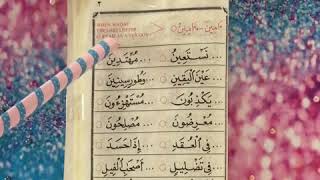 ٢
... نَسْتَعِينُ ... مُهْتَدِينَ
... عَيْنَ الْيَقِينِ ... وَطُورِ سِينِينَ
... يَكْذِبُونَ ... مُسْتَهْزِءُونَ
... مُعْرِضُونَ ... مُصْلِحُونَ
... فِي الْعُقَدِ ... إِذَا حَسَدَ
... فِي تَضْلِيلٍ ... أَصْحَابِ الْفِيلِ